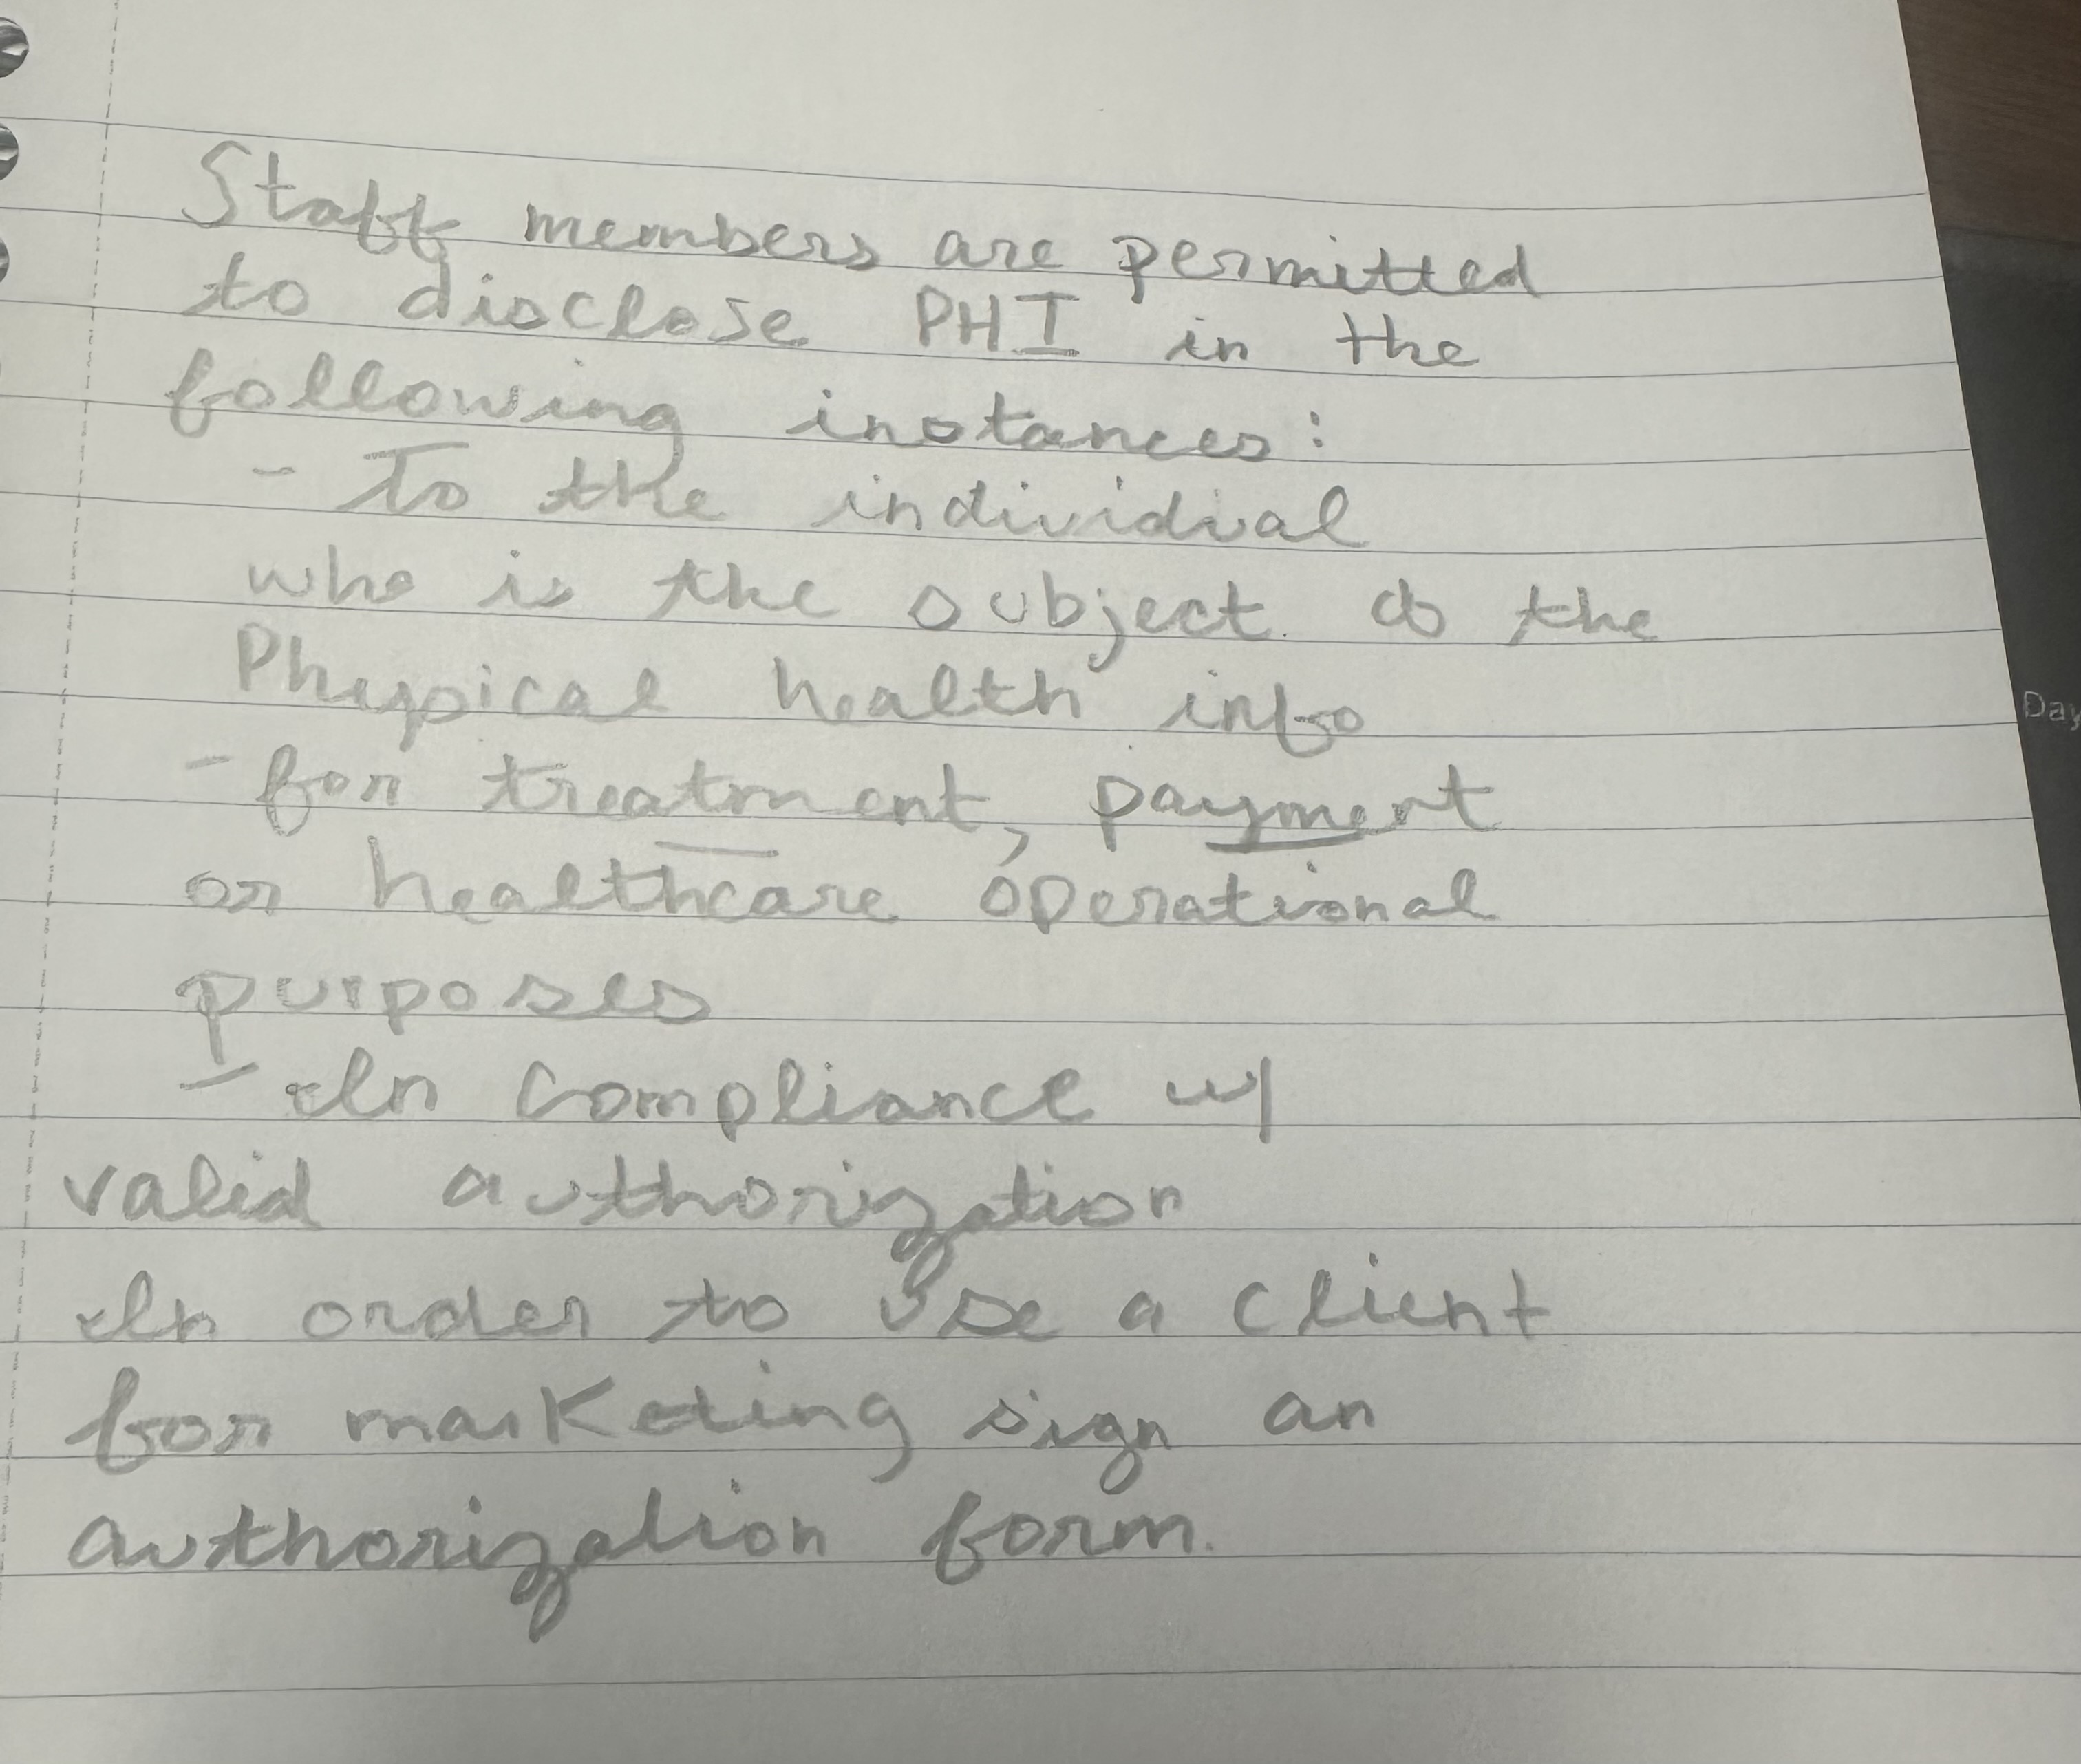 Staff members are permitted
to disclose PHI in the
following instances:
- To the individual
who is the subject of the
Physical health info
- for treatment, payment
or healthcare operational
purposes
- In compliance w/
valid authorization
In order to use a client
for marketing sign an
authorization form.
Day